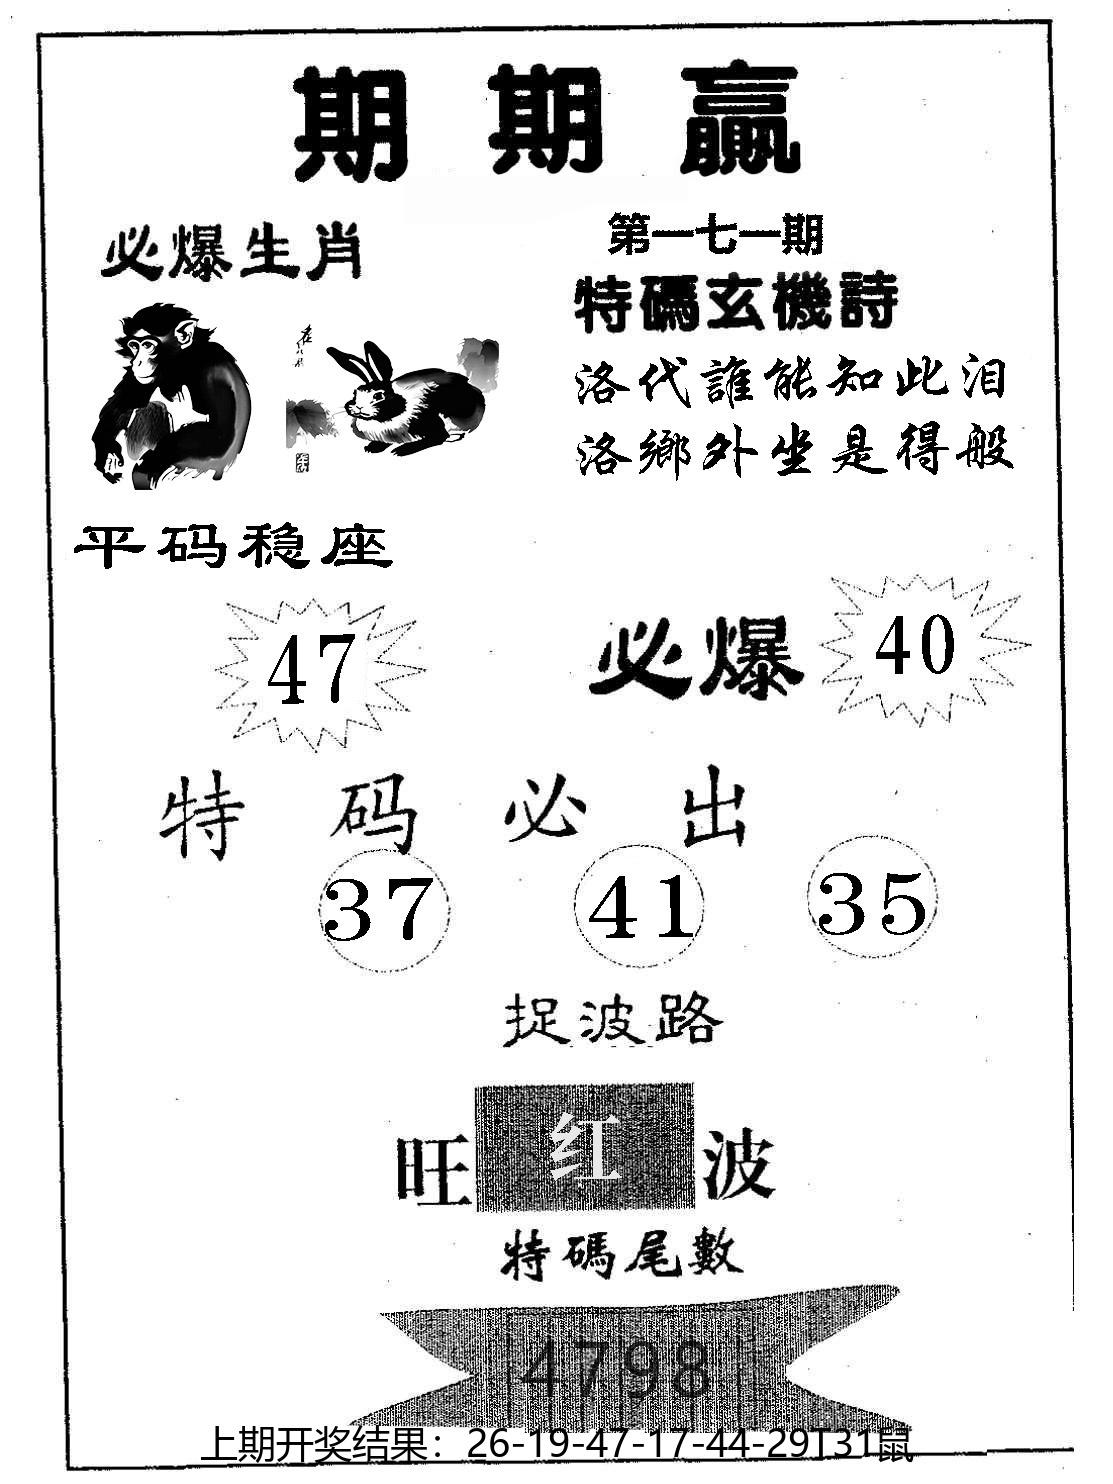 期期赢
必爆生肖
第一七一期
特碼玄機詩
洛代誰能知此泪
洛鄉外坐是得般
平码稳座
47
必爆 40
特码必出
37 41 35
捉波路
旺红波
特碼尾數
4798
上期开奖结果：26-19-47-17-44-29T31鼠